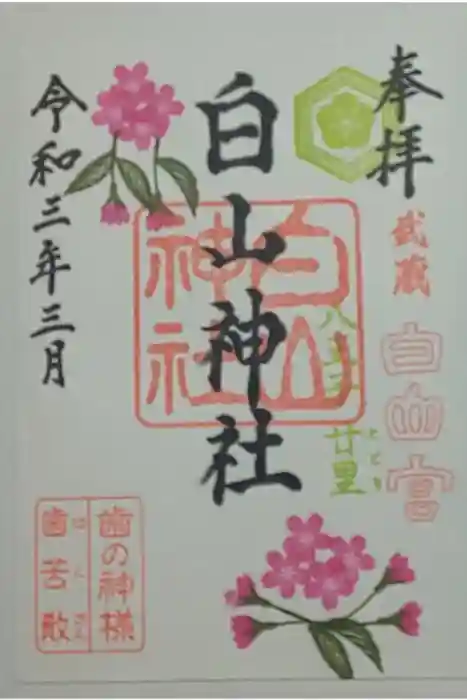 奉拝
武蔵
白山宮
八王子
廿里
とどり
白山神社
白山
神社
令和三年三月
歯の神様
歯苦散